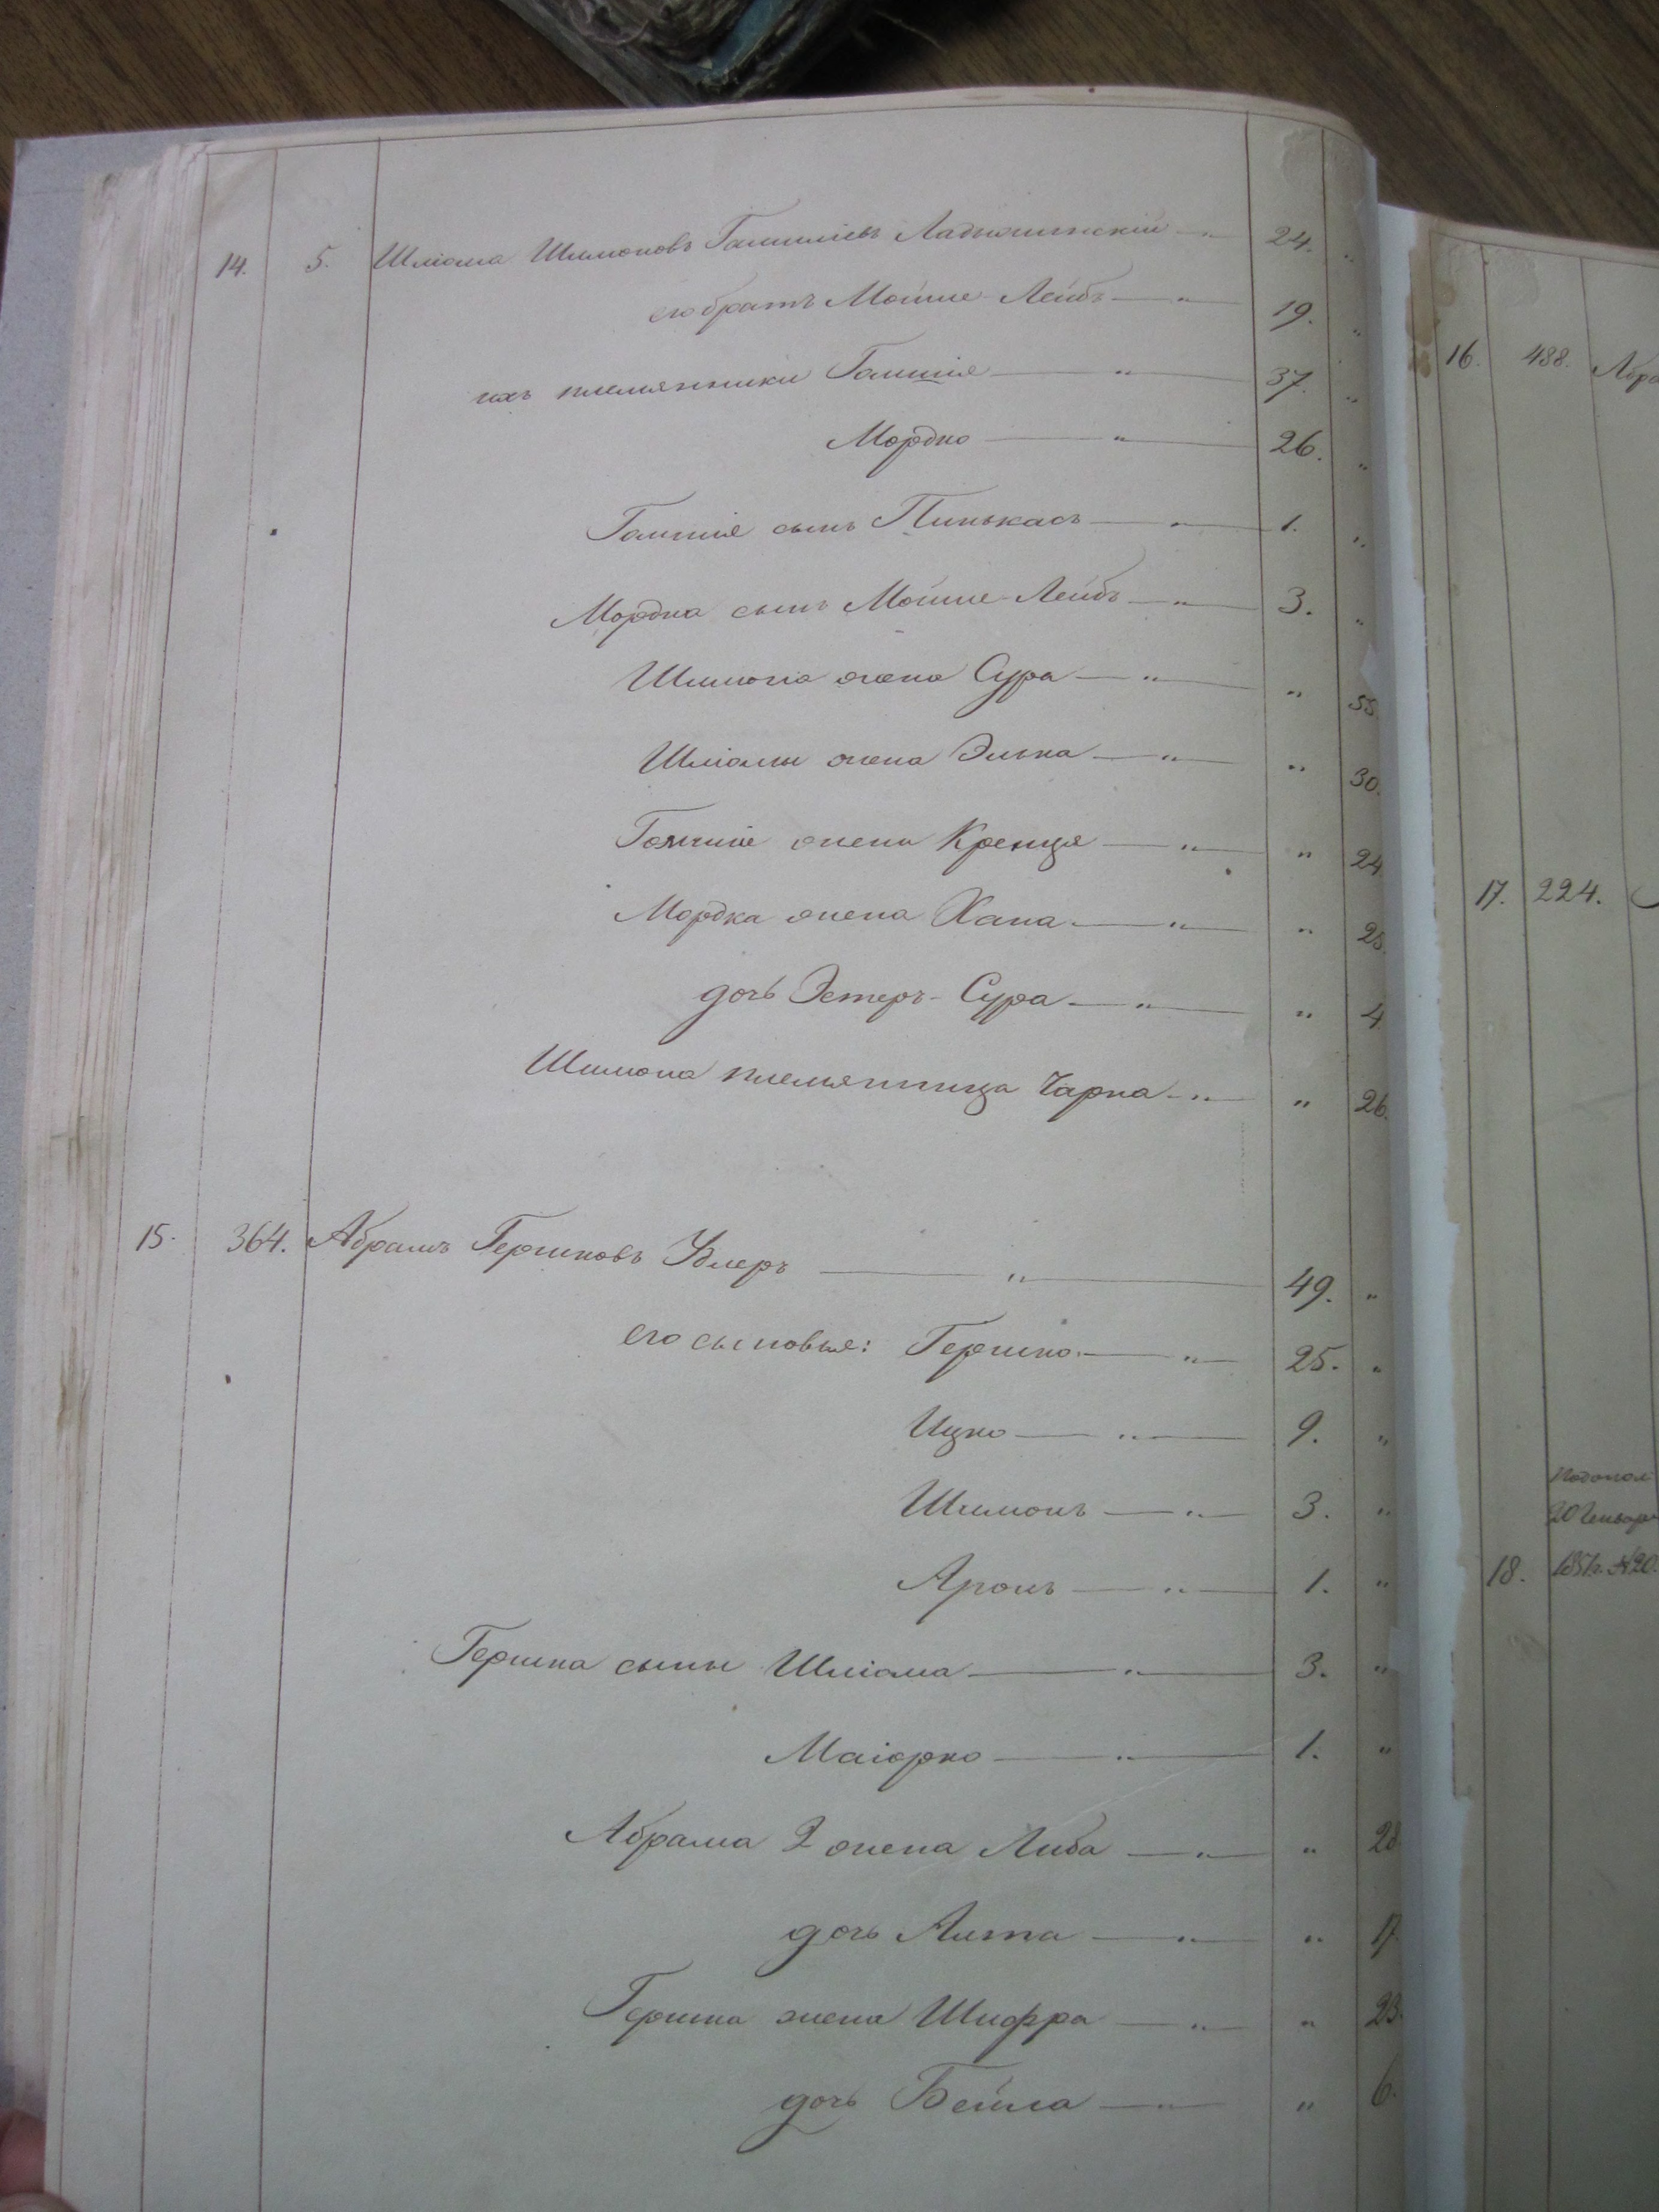 14. 5. Шліома Шимоновъ Гамшіевъ Ладыжинскій — „ 24. „
его братъ Мойше-Лейбъ — „ 19. „
ихъ племянники Гамшіе — „ 37. „
Мордко — „ 26. „
Гамшіе сынъ Пинькасъ — „ 1. „
Мордка сынъ Мойше-Лейбъ — „ 3. „
Шимона жена Сура — „ „ 55.
Шліомы жена Элька — „ „ 30.
Гамшіе жена Кренця — „ „ 24
Мордка жена Хана — „ „ 25.
дочь Эстеръ-Сура — „ „ 4
Шимона племянница Чарна — „ „ 26.
15. 364. Абрамъ Гершковъ Улеръ — „ 49. „
его сыновья: Гершко — „ 25. „
Ицко — „ 9. „
Шимонъ — „ 3. „
Аронъ — „ 1. „
Гершка сыны Шліома — „ 3. „
Маіорко — „ 1. „
Абрама 2 жена Либа — „ „ 28
дочь Анта — „ „ 17.
Гершка жена Шифра — „ „ 23.
дочь Бейла — „ „ 6.
16. 488. Абра
17. 224.
20 Генвар
18. 1851г. №20.